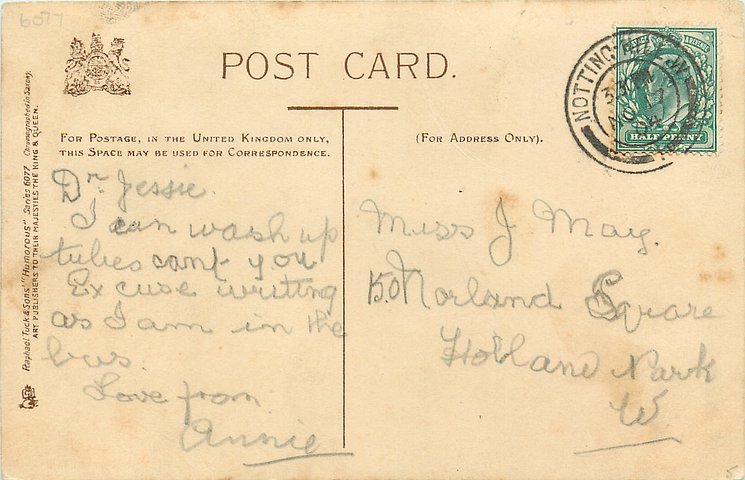 6077
POST CARD.
FOR POSTAGE, IN THE UNITED KINGDOM ONLY,
THIS SPACE MAY BE USED FOR CORRESPONDENCE.
(FOR ADDRESS ONLY).
Raphael Tuck & Sons' "Humorous" Series 6077. Chromographed in Saxony.
ART PUBLISHERS TO THEIR MAJESTIES THE KING & QUEEN.
Dr Jessie.
I can wash up
tubes cant you
Excuse writing
as I am in the
bus.
Love from
Annie
Miss J May.
50 Norland Square
Holland Park
W
HALF PENNY
5